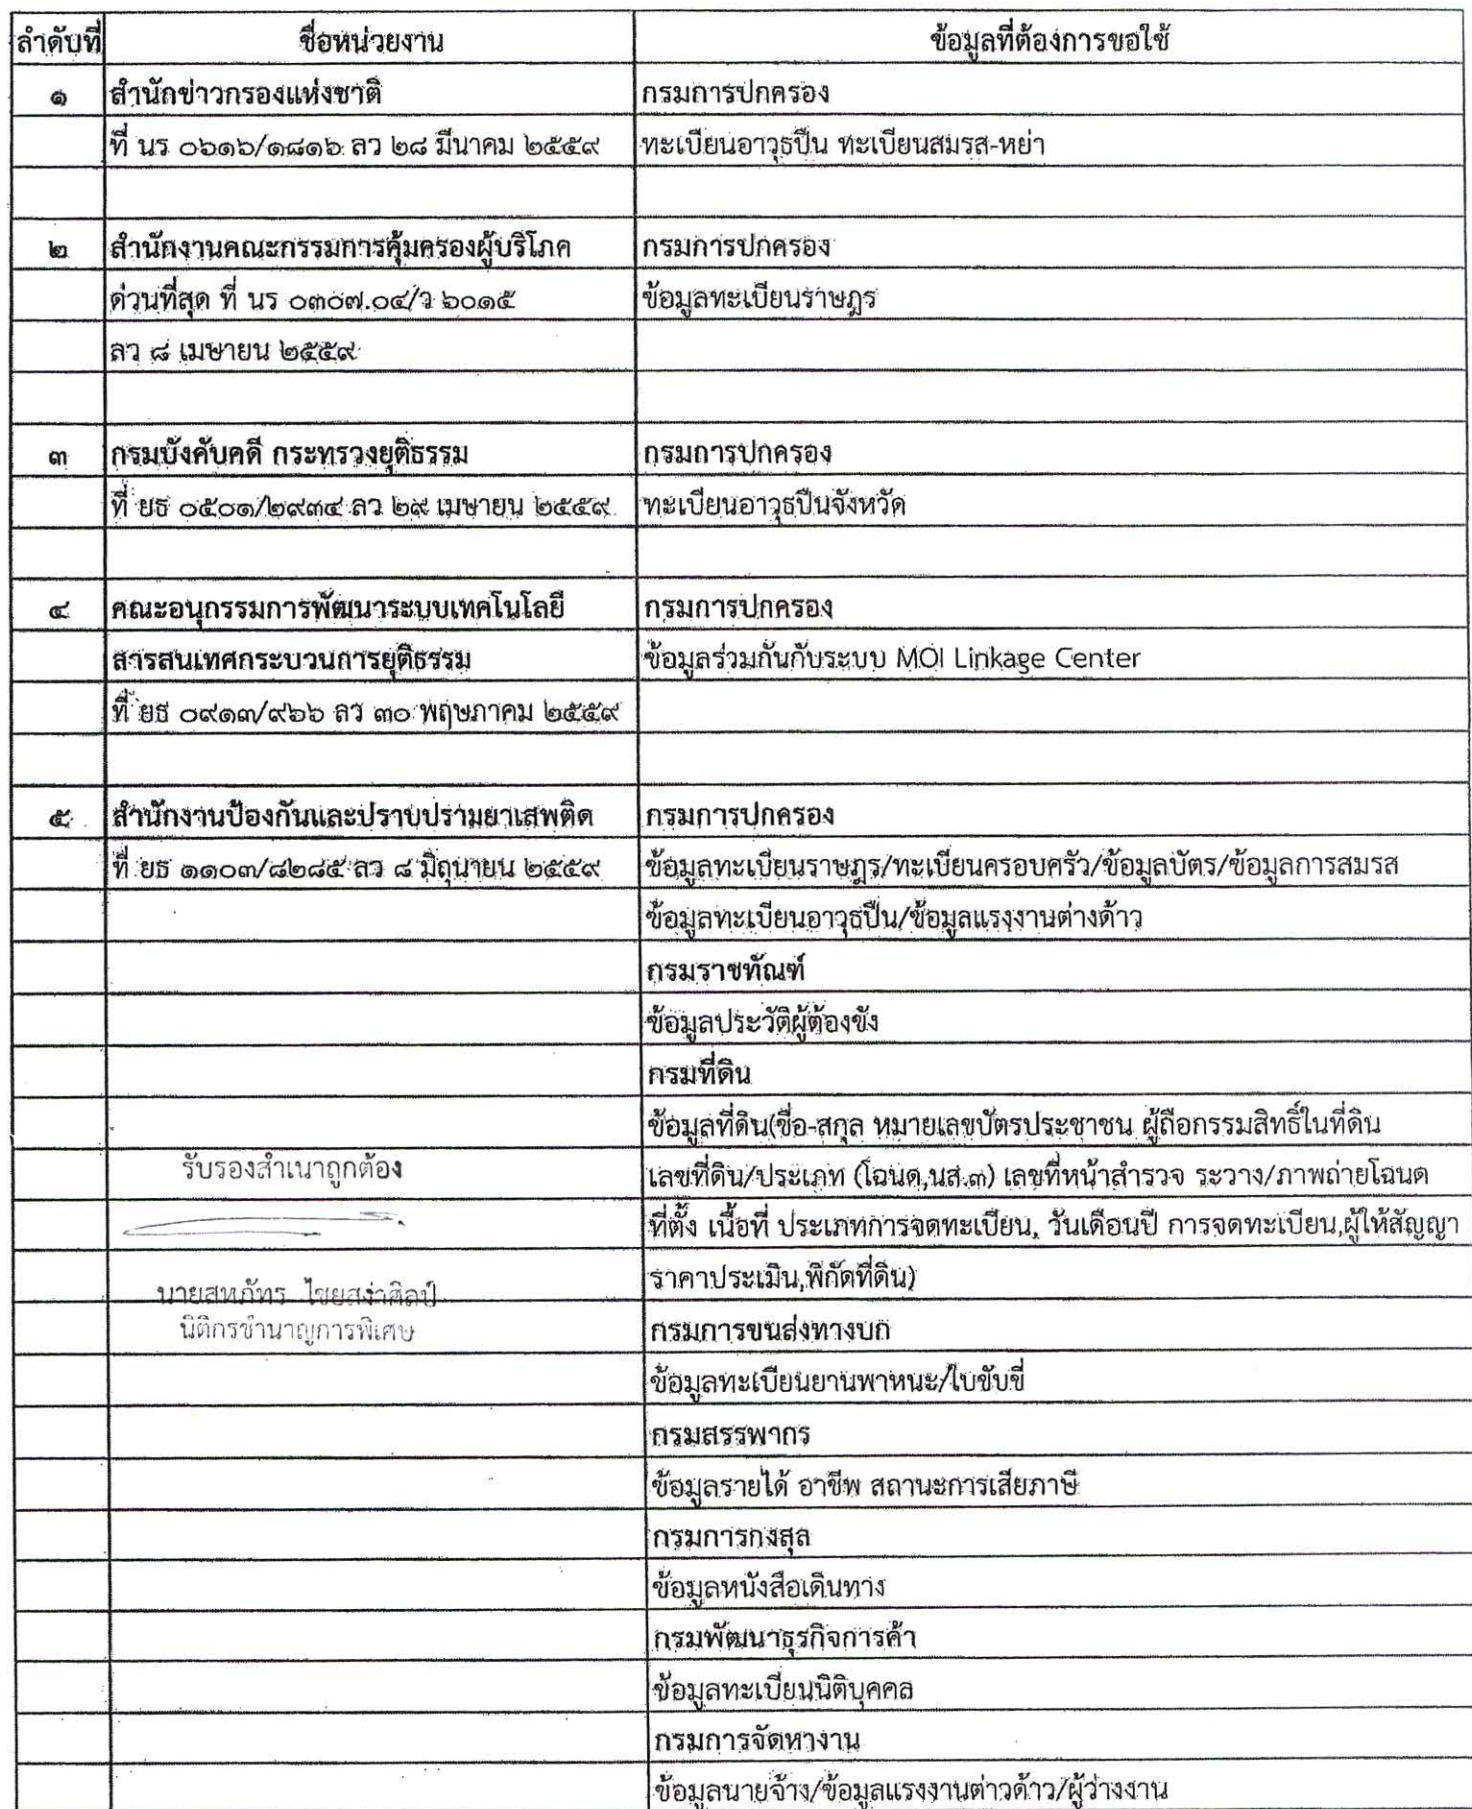 ลำดับที่ ชื่อหน่วยงาน ข้อมูลที่ต้องการขอใช้
๑ สำนักข่าวกรองแห่งชาติ กรมการปกครอง
ที่ นร ๐๖๑๖/๑๘๑๖ ลว ๒๘ มีนาคม ๒๕๕๙ ทะเบียนอาวุธปืน ทะเบียนสมรส-หย่า
๒ สำนักงานคณะกรรมการคุ้มครองผู้บริโภค กรมการปกครอง
ด่วนที่สุด ที่ นร ๐๓๐๗.๐๔/ว ๖๐๑๕ ข้อมูลทะเบียนราษฎร
ลว ๘ เมษายน ๒๕๕๙
๓ กรมบังคับคดี กระทรวงยุติธรรม กรมการปกครอง
ที่ ยธ ๐๕๐๑/๒๙๓๔ ลว ๒๙ เมษายน ๒๕๕๙ ทะเบียนอาวุธปืนจังหวัด
๔ คณะอนุกรรมการพัฒนาระบบเทคโนโลยี กรมการปกครอง
สารสนเทศกระบวนการยุติธรรม ข้อมูลร่วมกันกับระบบ MOI Linkage Center
ที่ ยธ ๐๙๑๓/๙๖๖ ลว ๓๐ พฤษภาคม ๒๕๕๙
๕ สำนักงานป้องกันและปราบปรามยาเสพติด กรมการปกครอง
ที่ ยธ ๑๑๐๓/๘๒๘๕ ลว ๘ มิถุนายน ๒๕๕๙ ข้อมูลทะเบียนราษฎร/ทะเบียนครอบครัว/ข้อมูลบัตร/ข้อมูลการสมรส
ข้อมูลทะเบียนอาวุธปืน/ข้อมูลแรงงานต่างด้าว
กรมราชทัณฑ์
ข้อมูลประวัติผู้ต้องขัง
กรมที่ดิน
ข้อมูลที่ดิน(ชื่อ-สกุล หมายเลขบัตรประชาชน ผู้ถือกรรมสิทธิ์ในที่ดิน
รับรองสำเนาถูกต้อง เลขที่ดิน/ประเภท (โฉนด,นส.๓) เลขที่หน้าสำรวจ ระวาง/ภาพถ่ายโฉนด
ที่ตั้ง เนื้อที่ ประเภทการจดทะเบียน, วันเดือนปี การจดทะเบียน,ผู้ให้สัญญา
นายสหภัทร ไชยสง่าศิลป์ ราคาประเมิน,พิกัดที่ดิน)
นิติกรชำนาญการพิเศษ กรมการขนส่งทางบก
ข้อมูลทะเบียนยานพาหนะ/ใบขับขี่
กรมสรรพากร
ข้อมูลรายได้ อาชีพ สถานะการเสียภาษี
กรมการกงสุล
ข้อมูลหนังสือเดินทาง
กรมพัฒนาธุรกิจการค้า
ข้อมูลทะเบียนนิติบุคคล
กรมการจัดหางาน
ข้อมูลนายจ้าง/ข้อมูลแรงงานต่าวด้าว/ผู้ว่างงาน